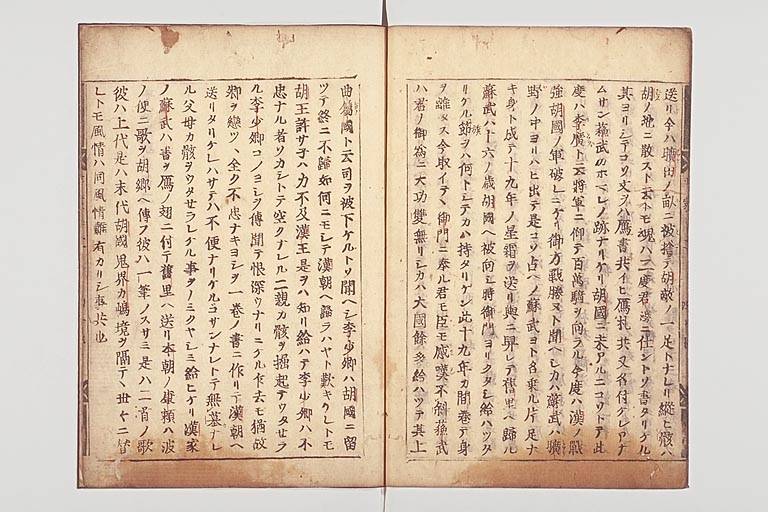 送リ今ハ曠田ノ畝ニ被捨テ胡敵ノ一足トナレリ縦ヒ骸ハ
胡ノ地ニ散ストモ云トモ魂ハ二度君邊ニ仕ントソ書タリケル
其ヨリシテコソ文ヲハ鴈書共イヒ鴈札共又名付ケレアナ
ムサン蘓武カホヘレノ跡ナリケリ胡國ニ表アルニコソトテ此
度ハ李廣ト云將軍ニ仰テ百万騎ヲ向ラル今度ハ漢ノ戰
強胡國ノ軍破レニケリ御方戰勝ヌト聞ヘシカハ蘓武ハ曠
野ノ中ヨリハヒ出テ是コソ古ヘノ蘓武ヨト名乗ル片足ナ
キ身ト成テ十九年ノ星霜ヲ送リ輿ニ舁レテ舊里ヘ歸ル
蘇武ハ十六ノ歳胡國ヘ被向シ時御門ヨリクタシ給ハツタ
リケル錦ヲハ何トシテカハ持タリケン此十九年カ間巻テ身
ヲ離ヌス今取イテヽ御門ニ奉ル君モ臣モ感嘆不斜蘓武
ハ君ノ御為ニ大功雙無リシカハ大國餘多給ハツテ其上
曲屬國ト云司ヲ被下ケルトソ聞ヘシ李少卿ハ胡國ニ留
ツテ終ニ不歸如何ニモシテ漢朝ヘ歸ラハヤト歎キケレトモ
胡王許サ子ハ力不及漢王是ヲハ知リ給ハテ李少卿ハ不
忠ナル者ソカシトテ空クナレル二親カ骸ヲ掘起テウタセラ
ル李少卿コノヨシヲ傳聞テ恨深ウナリニケル乍去モ猶故
卿ヲ戀ツヽ全ク不忠ナキヨシヲ一巻ノ書ニ作リテ漢朝ヘ
送リタリケレハサテハ不便ナリケルコサンナレトテ無墓ナレ
ル父母カ骸ヲウタセラレケル事ヲノミクヤシミ給ヒケリ漢家
ノ蘇武ハ書ヲ鴈ノ翅ニ付テ舊里ヘ送リ本朝ノ康頼ハ波
ノ便ニ歌ヲ胡郷ヘ傳フ彼ハ一筆ノスサミ是ハ二首ノ歌
彼ハ上代是ハ末代胡國鬼界カ嶋境ヲ隔テヽ世々ニ替
レトモ風情ハ同風情難有カリシ事共也